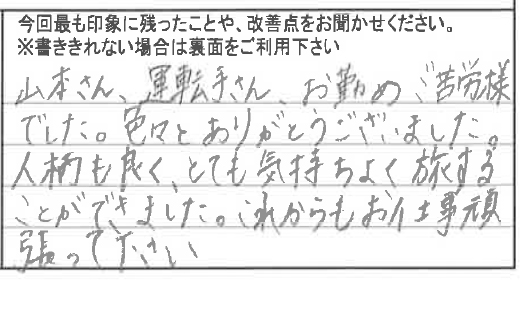 今回最も印象に残ったことや、改善点をお聞かせください。
※書ききれない場合は裏面をご利用下さい
山本さん、運転手さん、お勤めご苦労様
でした。色々とありがとうございました。
人柄も良く、とても気持ちよく旅する
ことができました。これからもお仕事頑
張って下さい